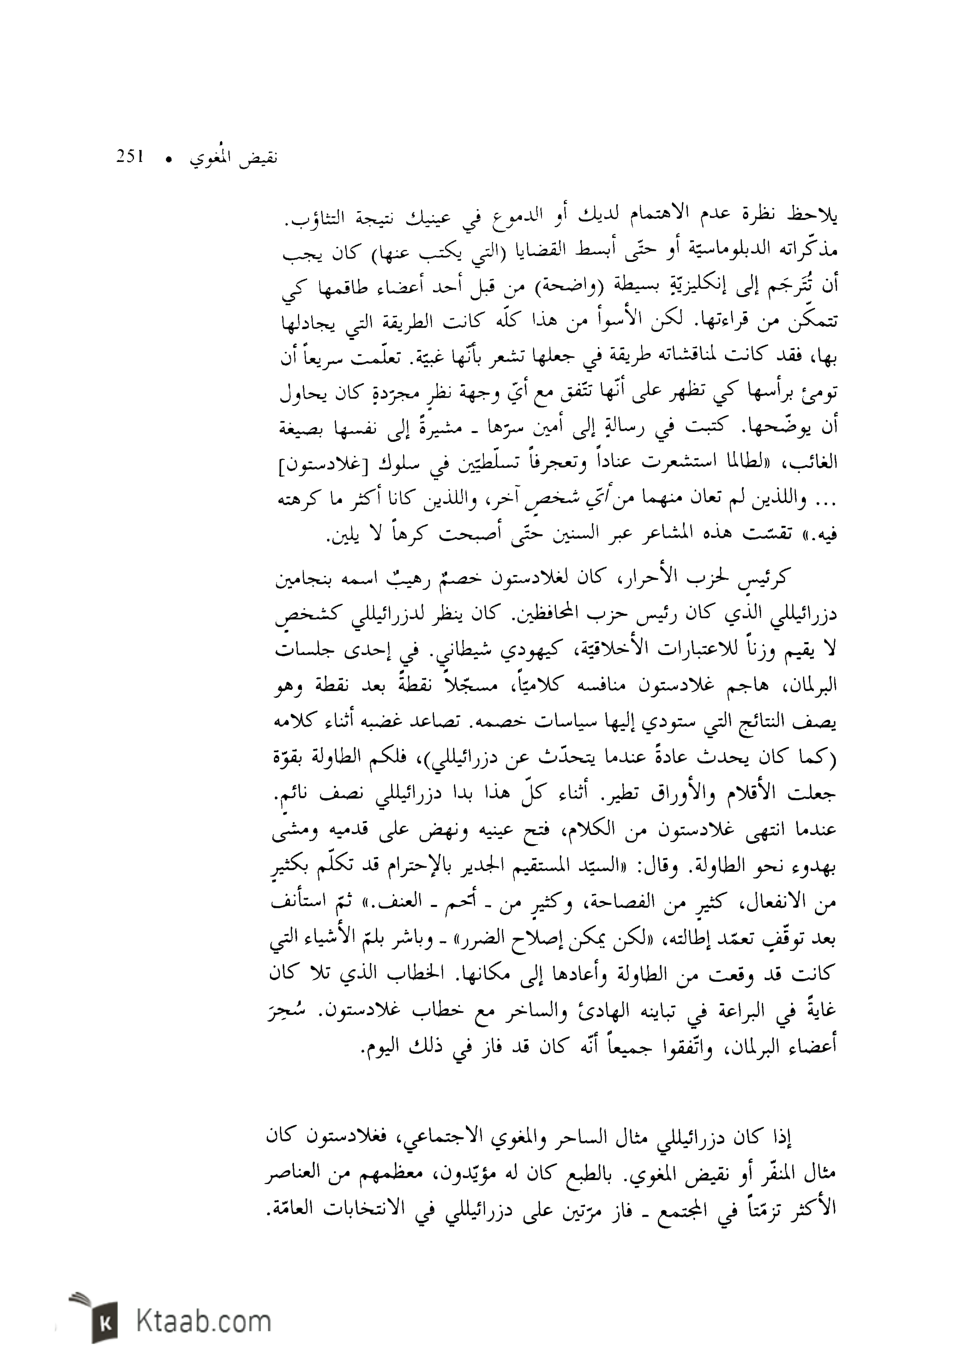 نقيض المُغوي • 251
يلاحظ نظرة عدم الاهتمام لديك أو الدموع في عينيك نتيجة التثاؤب.
مذكّراته الدبلوماسيّة أو حتّى أبسط القضايا (التي يكتب عنها) كان يجب
أن تُتَرجَم إلى إنكليزيّةٍ بسيطة (واضحة) من قبل أحد أعضاء طاقمها كي
تتمكّن من قراءتها. لكن الأسوأ من هذا كلّه كانت الطريقة التي يجادلها
بها، فقد كانت لمناقشاته طريقة في جعلها تشعر بأنّها غبيّة. تعلّمت سريعاً أن
تومئ برأسها كي تظهر على أنّها تتّفق مع أيّ وجهة نظرٍ مجرّدةٍ كان يحاول
أن يوضّحها. كتبت في رسالةٍ إلى أمين سرّها ـ مشيرةً إلى نفسها بصيغة
الغائب، «لطالما استشعرت عناداً وتعجرفاً تسلّطيّين في سلوك [غلادستون]
... واللذين لم تعان منهما من أيّ شخصٍ آخر، واللذين كانا أكثر ما كرهته
فيه.» تقسّت هذه المشاعر عبر السنين حتّى أصبحت كرهاً لا يلين.
كرئيسٍ لحزب الأحرار، كان لغلادستون خصمٌ رهيبٌ اسمه بنجامين
دزرائيللي الذي كان رئيس حزب المحافظين. كان ينظر لدزرائيللي كشخصٍ
لا يقيم وزناً للاعتبارات الأخلاقيّة، كيهودي شيطاني. في إحدى جلسات
البرلمان، هاجم غلادستون منافسه كلاميّاً، مسجّلاً نقطةً بعد نقطة وهو
يصف النتائج التي ستودي إليها سياسات خصمه. تصاعد غضبه أثناء كلامه
(كما كان يحدث عادةً عندما يتحدّث عن دزرائيللي)، فلكم الطاولة بقوّة
جعلت الأقلام والأوراق تطير. أثناء كلّ هذا بدا دزرائيللي نصف نائمٍ.
عندما انتهى غلادستون من الكلام، فتح عينيه ونهض على قدميه ومشى
بهدوء نحو الطاولة. وقال: «السيّد المستقيم الجدير بالإحترام قد تكلّم بكثيرٍ
من الانفعال، كثيرٍ من الفصاحة، وكثيرٍ من ـ أحّم ـ العنف.» ثمّ استأنف
بعد توقّفٍ تعمّد إطالته، «لكن يمكن إصلاح الضرر» ـ وباشر بلمّ الأشياء التي
كانت قد وقعت من الطاولة وأعادها إلى مكانها. الخطاب الذي تلا كان
غايةً في البراعة في تباينه الهادئ والساخر مع خطاب غلادستون. سُحِرَ
أعضاء البرلمان، واتّفقوا جميعاً أنّه كان قد فاز في ذلك اليوم.
إذا كان دزرائيللي مثال الساحر والمغوي الاجتماعي، فغلادستون كان
مثال المنفّر أو نقيض المغوي. بالطبع كان له مؤيّدون، معظمهم من العناصر
الأكثر تزمّتاً في المجتمع ـ فاز مرّتين على دزرائيللي في الانتخابات العامّة.
K Ktaab.com